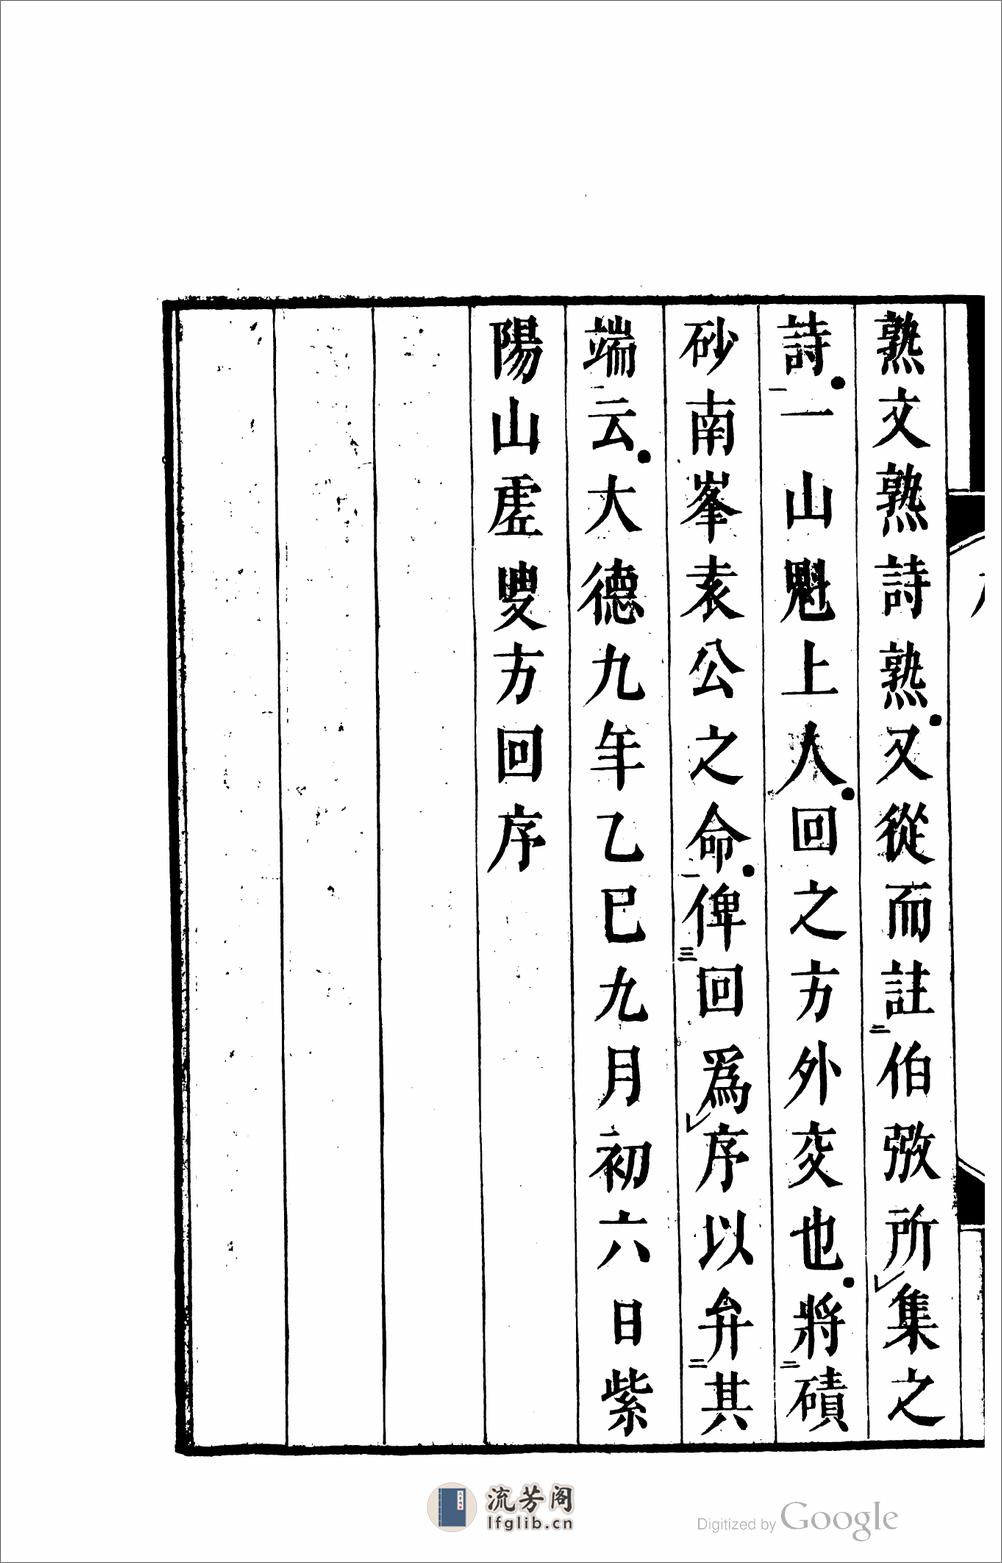 熟文熟詩熟又從而註伯弜所集之
詩一山魁上人回之方外交也將磧
砂南峯袁公之命俾回爲序以弁其
端云大德九年乙巳九月初六日紫
陽山虚叟方回序
流芳阁
lfglib.cn
Digitized by Google